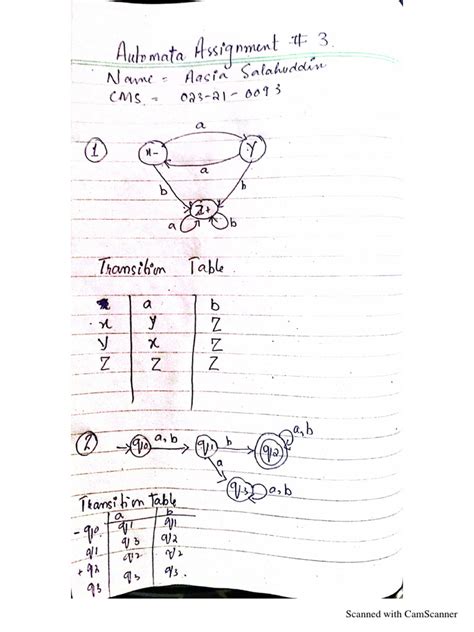 Automata Assignment # 3.
Name = Aasia Salahuddin
CMS = 023-21-0093
①
x- a y
a
b b
z+
a b
Transition Table
a b
x y Z
y x Z
Z Z Z
② q0 a,b q1 b q2 a,b
a
q3 a,b
Transition table
a b
-q0 q1 q1
q1 q3 q2
+q2 q2 q2
q3 q3 q3.
Scanned with CamScanner